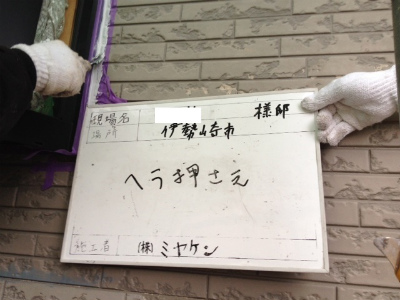 現場名 様邸
箇所 伊勢崎市
ヘラ押さえ
施工者 (株)ミヤケン